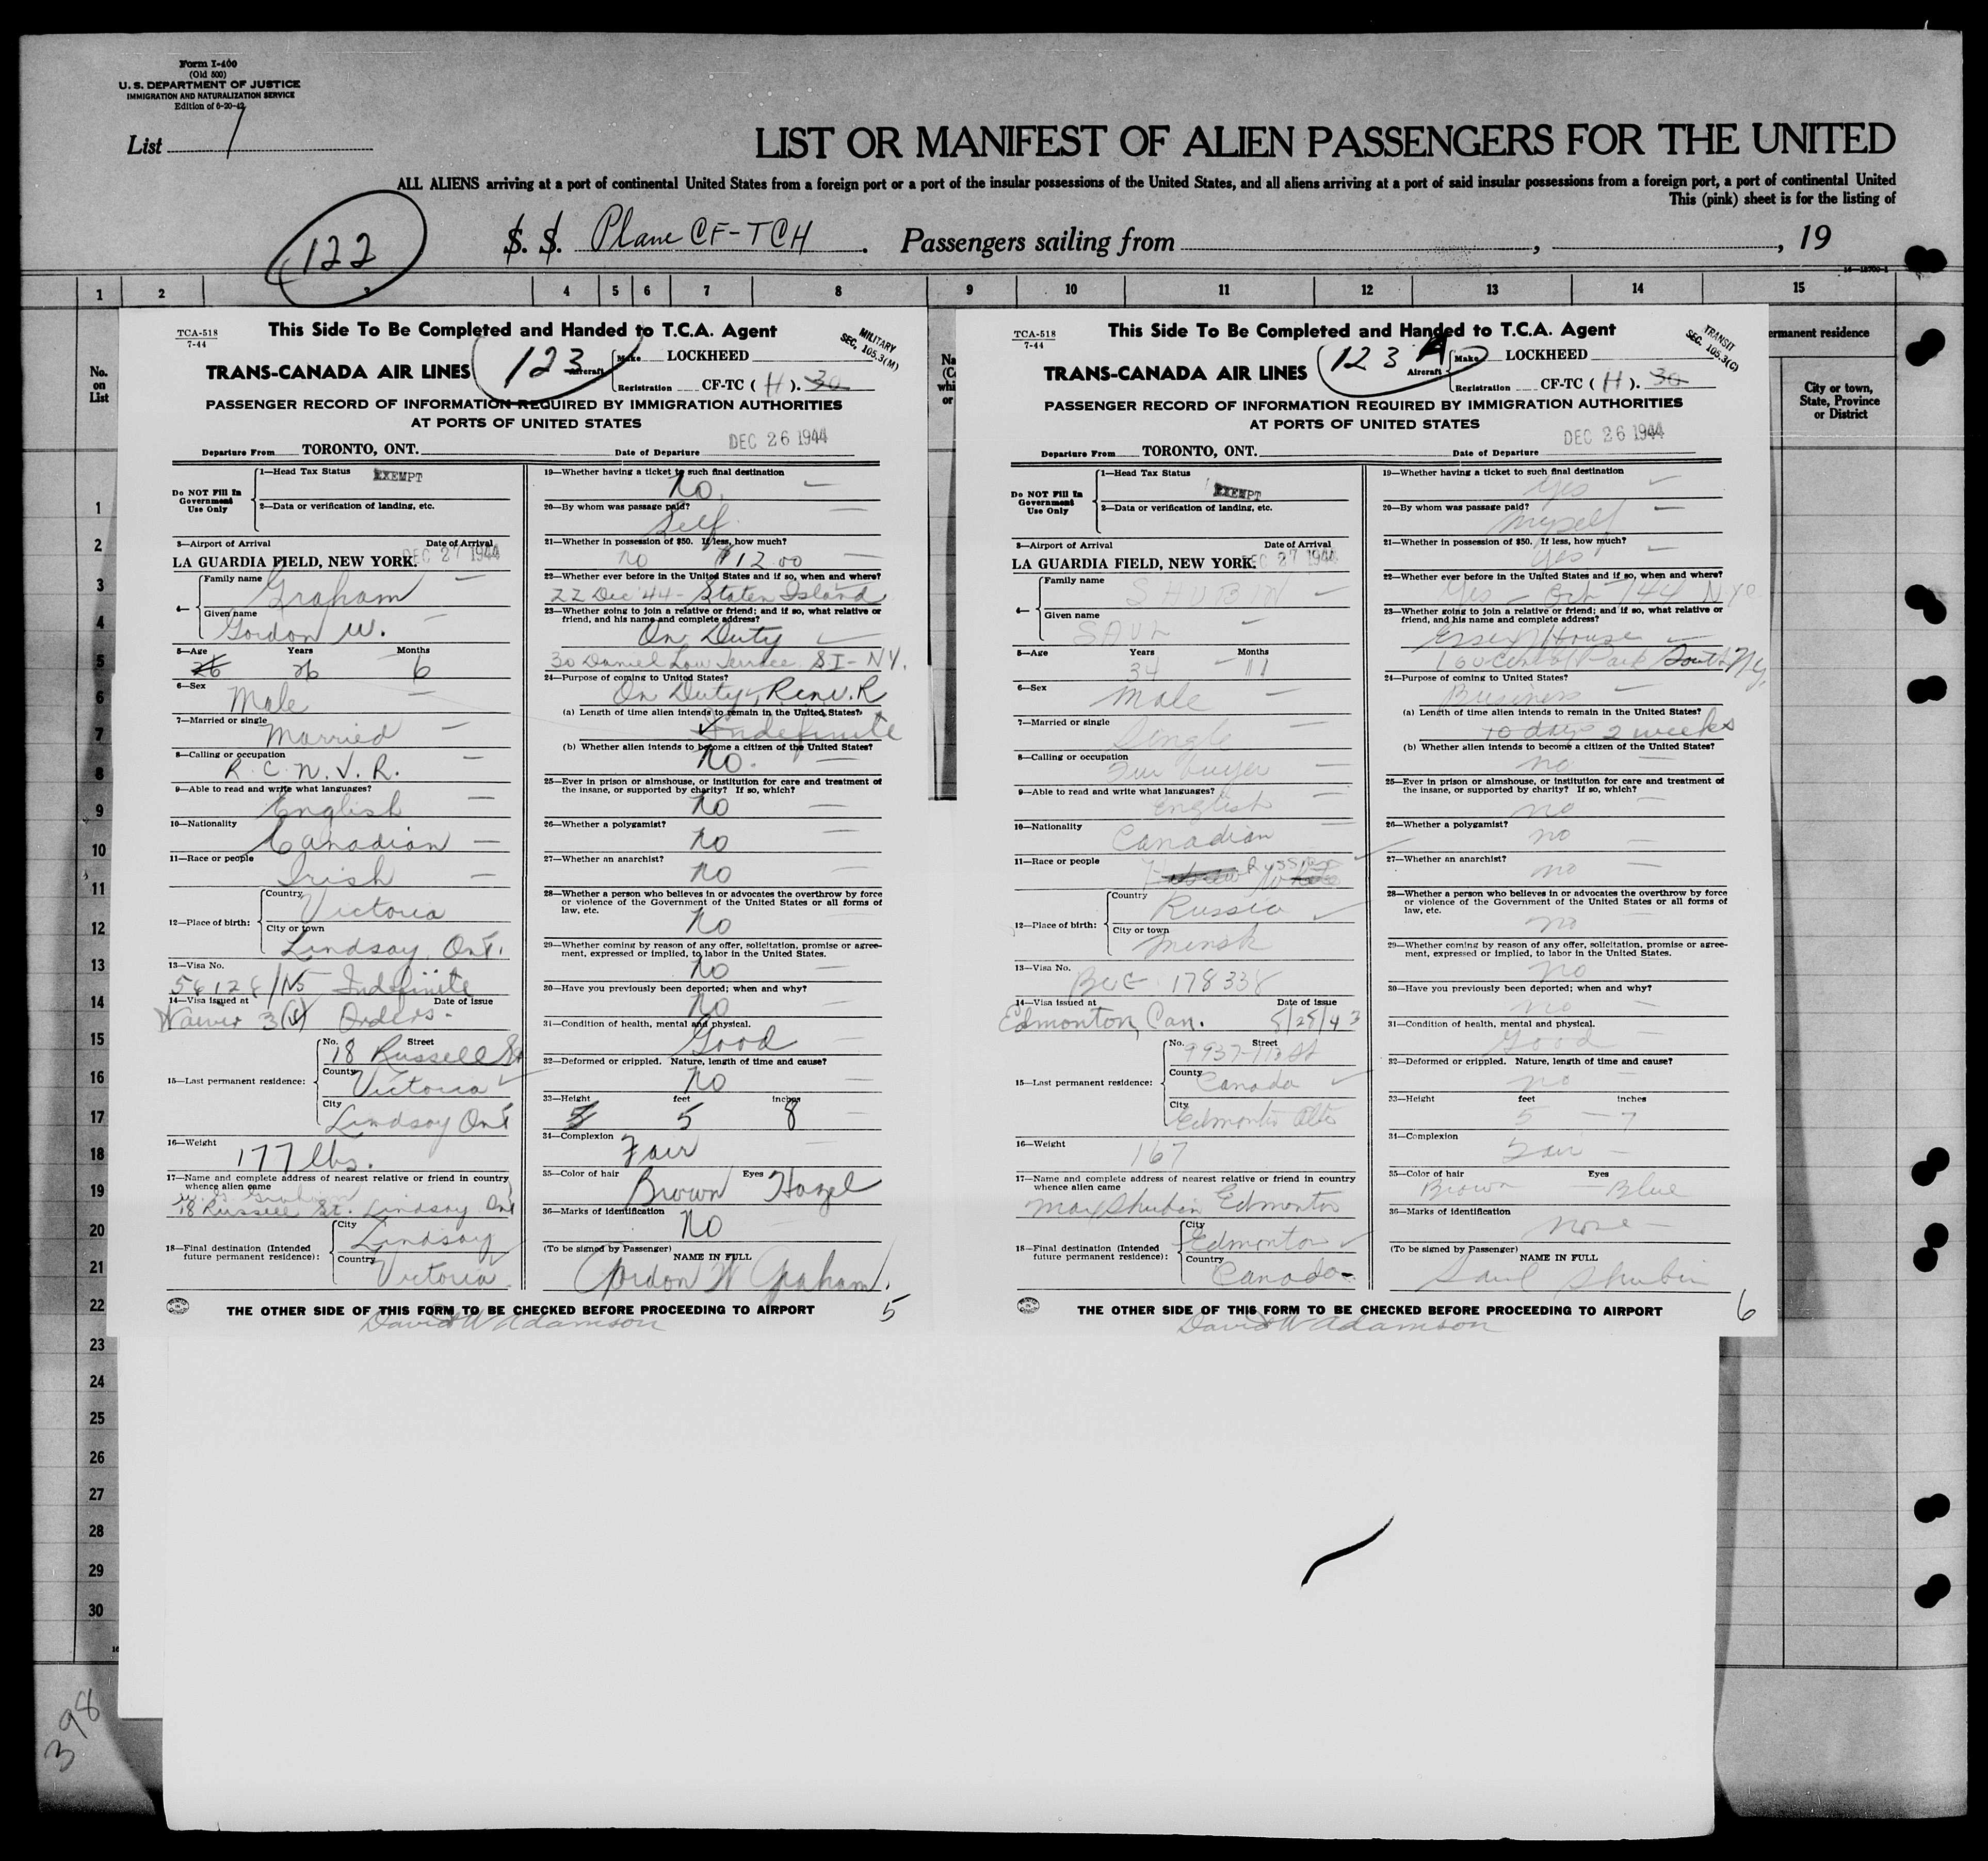 Form I-400
(Old 500)
U. S. DEPARTMENT OF JUSTICE
IMMIGRATION AND NATURALIZATION SERVICE
Edition of 6-20-42
List 1
LIST OR MANIFEST OF ALIEN PASSENGERS FOR THE UNITED
ALL ALIENS arriving at a port of continental United States from a foreign port or a port of the insular possessions of the United States, and all aliens arriving at a port of said insular possessions from a foreign port, a port of continental United
This (pink) sheet is for the listing of
122
S. S. Plane CF-TCH. Passengers sailing from , , 19
1 2 3 4 5 6 7 8 9 10 11 12 13 14 15
No.
on
List
ermanent residence
City or town,
State, Province
or District
1
2
3
4
5
6
7
8
9
10
11
12
13
14
15
16
17
18
19
20
21
22
23
24
25
26
27
28
29
30
398
TCA-518
7-44
This Side To Be Completed and Handed to T.C.A. Agent
MILITARY
SEC. 105.3(M)
123
TRANS-CANADA AIR LINES
Aircraft
Make LOCKHEED
Registration CF-TC ( H ). 30
PASSENGER RECORD OF INFORMATION REQUIRED BY IMMIGRATION AUTHORITIES
AT PORTS OF UNITED STATES
Departure From TORONTO, ONT. Date of Departure DEC 26 1944
Do NOT Fill In
Government
Use Only
1—Head Tax Status EXEMPT
2—Data or verification of landing, etc.
3—Airport of Arrival Date of Arrival
LA GUARDIA FIELD, NEW YORK. DEC 27 1944
4—
Family name Graham
Given name Gordon W.
5—Age Years Months
26 26 6
6—Sex Male
7—Married or single Married
8—Calling or occupation
R. C. N. V. R.
9—Able to read and write what languages?
English
10—Nationality Canadian
11—Race or people Irish
12—Place of birth:
Country Victoria
City or town Lindsay, Ont.
13—Visa No.
Indefinite
14—Visa issued at Date of issue
Waiver Orders.
15—Last permanent residence:
No. Street
18 Russell St
County Victoria
City Lindsay Ont
16—Weight 177 lbs.
17—Name and complete address of nearest relative or friend in country
whence alien came
Graham
18 Russell St. Lindsay Ont
18—Final destination (Intended
future permanent residence):
City Lindsay
Country Victoria
19—Whether having a ticket to such final destination
No.
20—By whom was passage paid?
Self
21—Whether in possession of $50. If less, how much?
No $12.00
22—Whether ever before in the United States and if so, when and where?
22 Dec 44 - Staten Island
23—Whether going to join a relative or friend; and if so, what relative or
friend, and his name and complete address?
On Duty
30 Daniel Low Terrace S.I - N.Y.
24—Purpose of coming to United States?
On Duty
(a) Length of time alien intends to remain in the United States?
Indefinite
(b) Whether alien intends to become a citizen of the United States?
No.
25—Ever in prison or almshouse, or institution for care and treatment of
the insane, or supported by charity? If so, which?
No
26—Whether a polygamist?
No
27—Whether an anarchist?
No
28—Whether a person who believes in or advocates the overthrow by force
or violence of the Government of the United States or all forms of
law, etc.
No
29—Whether coming by reason of any offer, solicitation, promise or agree-
ment, expressed or implied, to labor in the United States.
No
30—Have you previously been deported; when and why?
No
31—Condition of health, mental and physical.
Good
32—Deformed or crippled. Nature, length of time and cause?
No
33—Height feet inches
5 8
34—Complexion
Fair
35—Color of hair Brown Eyes Hazel
36—Marks of identification
No
(To be signed by Passenger)
NAME IN FULL
Gordon W Graham.
THE OTHER SIDE OF THIS FORM TO BE CHECKED BEFORE PROCEEDING TO AIRPORT
5
David W Adamson
TCA-518
7-44
This Side To Be Completed and Handed to T.C.A. Agent
TRANSIT
SEC. 105.3(C)
123 A
TRANS-CANADA AIR LINES
Aircraft
Make LOCKHEED
Registration CF-TC ( H ). 30
PASSENGER RECORD OF INFORMATION REQUIRED BY IMMIGRATION AUTHORITIES
AT PORTS OF UNITED STATES
Departure From TORONTO, ONT. Date of Departure DEC 26 1944
Do NOT Fill In
Government
Use Only
1—Head Tax Status
EXEMPT
2—Data or verification of landing, etc.
3—Airport of Arrival Date of Arrival
LA GUARDIA FIELD, NEW YORK. DEC 27 1944
4—
Family name SHUBIN
Given name SAUL
5—Age Years Months
34 11
6—Sex Male
7—Married or single
Single
8—Calling or occupation
Fur buyer
9—Able to read and write what languages?
English
10—Nationality Canadian
11—Race or people Russian
12—Place of birth:
Country Russia
City or town Minsk
13—Visa No.
BCC 178338
14—Visa issued at Date of issue
Edmonton, Can. 5/25/43
15—Last permanent residence:
No. Street
9937-113 St
County Canada
City Edmonton Alta
16—Weight 167
17—Name and complete address of nearest relative or friend in country
whence alien came
Max Shubin Edmonton
18—Final destination (Intended
future permanent residence):
City Edmonton
Country Canada
19—Whether having a ticket to such final destination
Yes
20—By whom was passage paid?
Myself
21—Whether in possession of $50. If less, how much?
Yes
22—Whether ever before in the United States and if so, when and where?
Yes - Oct 7/44 N.Y.C
23—Whether going to join a relative or friend; and if so, what relative or
friend, and his name and complete address?
Essex House
160 Central Park South N.Y.
24—Purpose of coming to United States?
Business
(a) Length of time alien intends to remain in the United States?
10 days 2 weeks
(b) Whether alien intends to become a citizen of the United States?
no
25—Ever in prison or almshouse, or institution for care and treatment of
the insane, or supported by charity? If so, which?
no
26—Whether a polygamist?
no
27—Whether an anarchist?
no
28—Whether a person who believes in or advocates the overthrow by force
or violence of the Government of the United States or all forms of
law, etc.
no
29—Whether coming by reason of any offer, solicitation, promise or agree-
ment, expressed or implied, to labor in the United States.
no
30—Have you previously been deported; when and why?
no
31—Condition of health, mental and physical.
Good
32—Deformed or crippled. Nature, length of time and cause?
no
33—Height feet inches
5 7
34—Complexion
Fair
35—Color of hair Brown Eyes Blue
36—Marks of identification
none
(To be signed by Passenger)
NAME IN FULL
Saul Shubin
THE OTHER SIDE OF THIS FORM TO BE CHECKED BEFORE PROCEEDING TO AIRPORT
6
David W Adamson